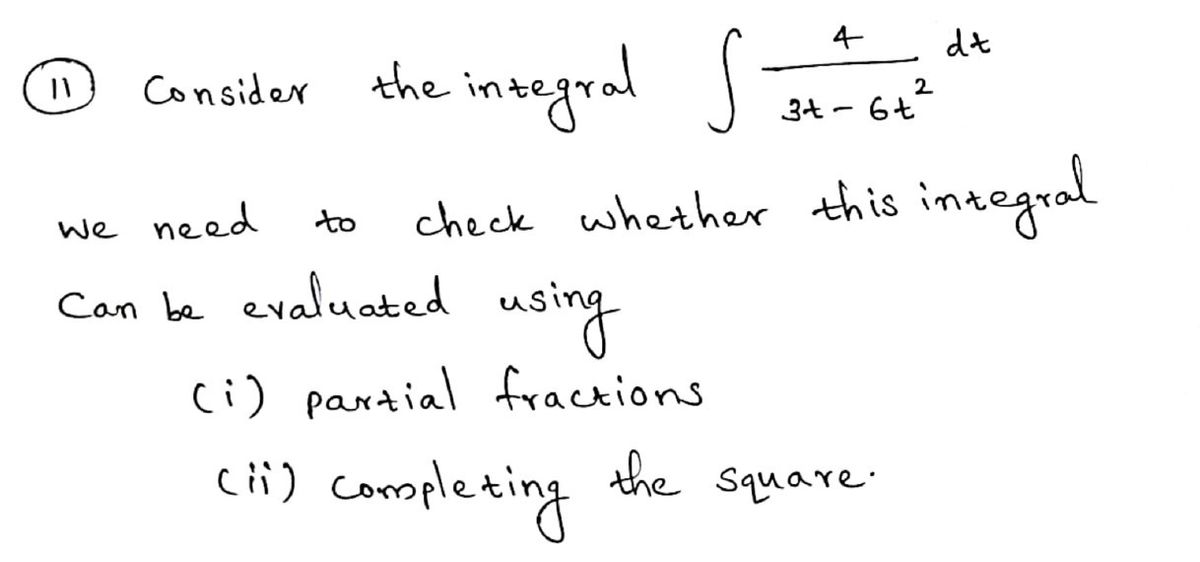 (11) Consider the integral ∫ 4/(3t - 6t²) dt
We need to check whether this integral
Can be evaluated using
(i) partial fractions
(ii) completing the square.